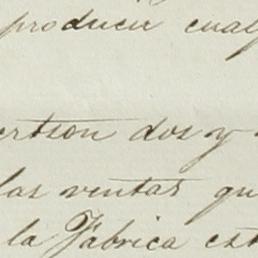 producir cual
ertson dos y
las ventas qu
la Fabrica est